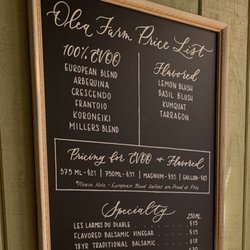 Olea Farm Price List
100% EVOO
EUROPEAN BLEND
ARBEQUINA
CRESCENDO
FRANTOIO
KORONEIKI
MILLERS BLEND
Flavored
LEMON BLUSH
BASIL BLUSH
KUMQUAT
TARRAGON
Pricing for EVOO + Flavored
375 ML - $21 | 750 ML - $31 | MAGNUM - $55 | GALLON - $85
*Please Note - European Blend Gallons are Priced at
SPECIALTY
250ML
LES LARMES DU DIABLE
FLAVORED BALSAMIC VINEGAR
18YR TRADITIONAL BALSAMIC